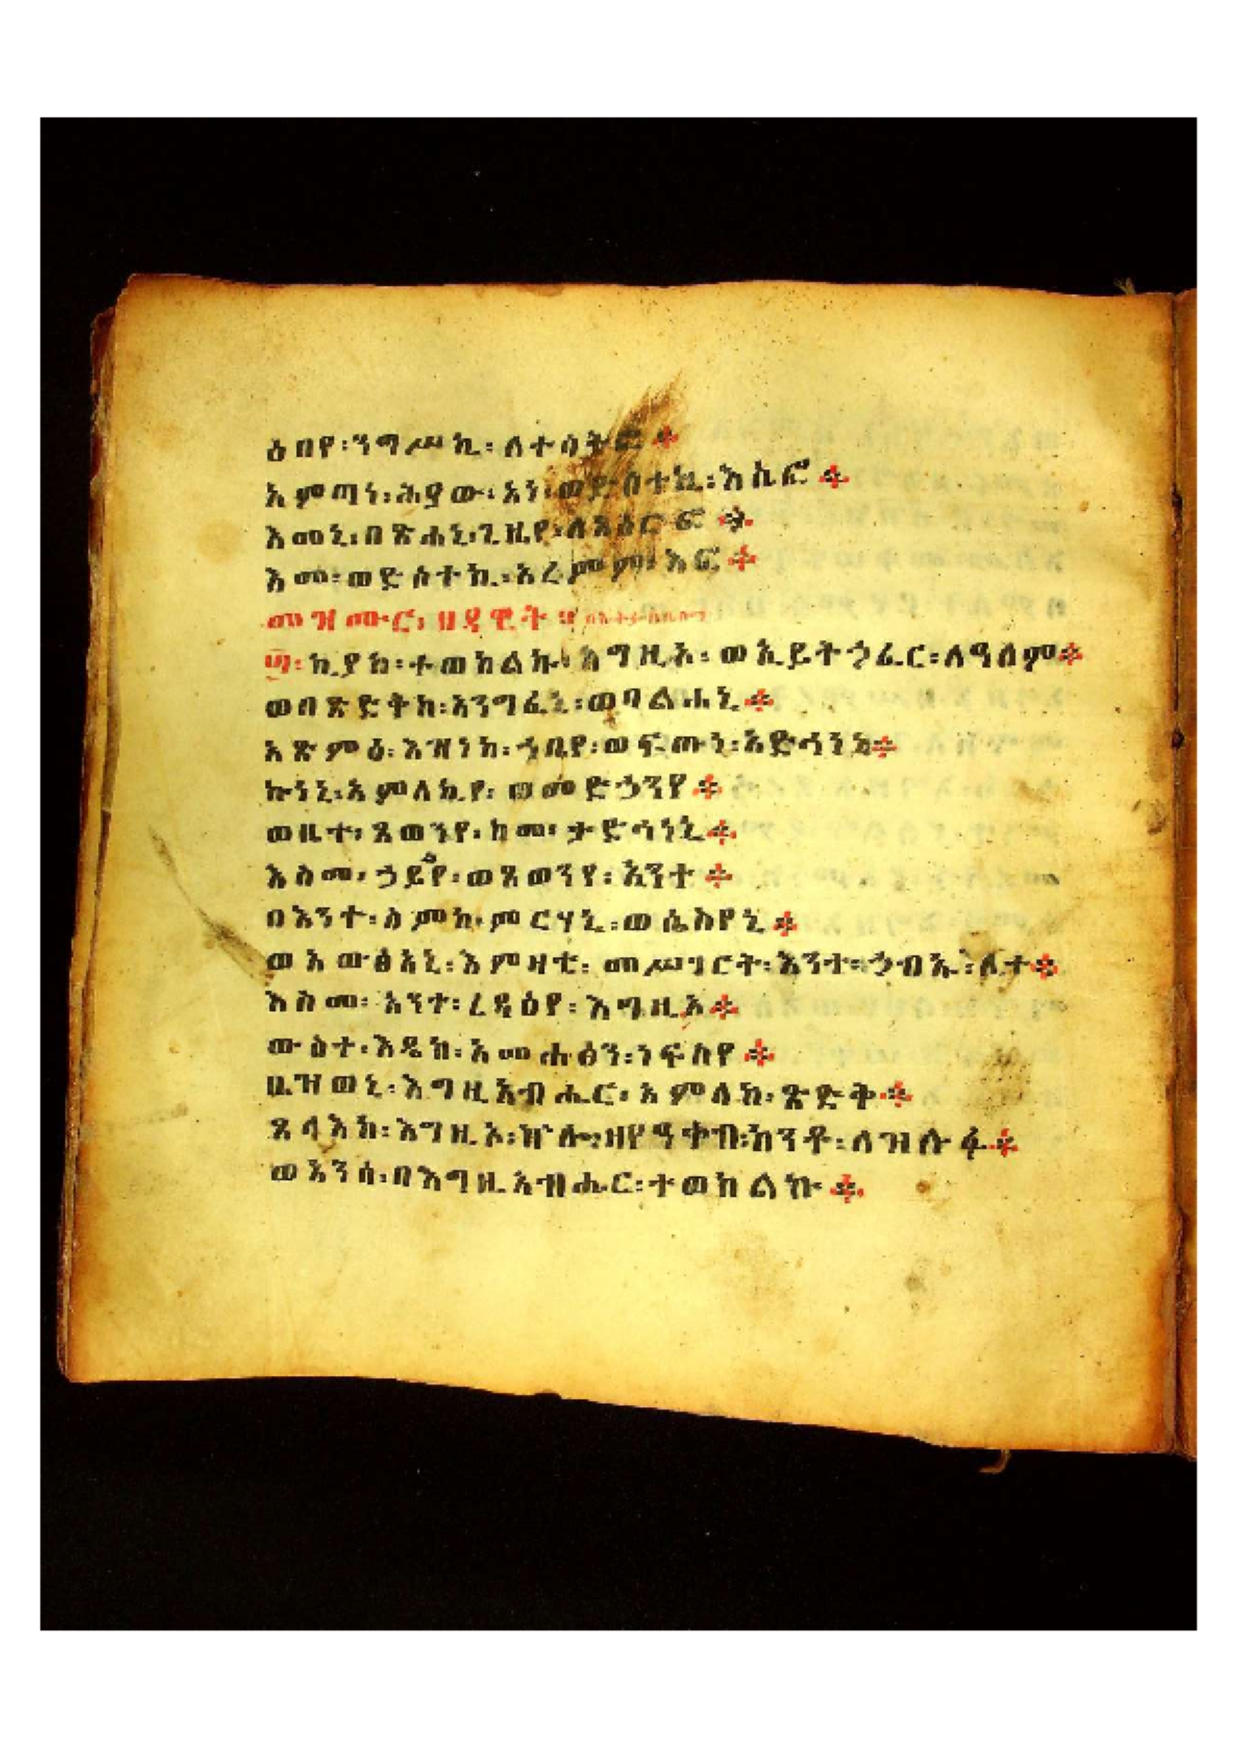 ዕበየ፡ንግሥኪ፡ለተሳትፎ።
አምጣነ፡ሕያው፡አነ፡ወድስተኪ፡እኪሎ።
እመኒ፡በጽሐኒ፡ጊዜየ፡ለአዕርፍ።
እመ፡ወድስተኪ፡አረምም፡አፍ።
መዝሙር፡ዘዳዊት።
፴፡ኪያከ፡ተወከልኩ፡እግዚኦ፡ወኢይትኃፈር፡ለዓለም።
ወበጽድቅከ፡አንግፈኒ፡ወባልሐኒ።
አጽምዕ፡እዝነከ፡ኀቤየ፡ወፍጡነ፡አድኅነኒ።
ኩነኒ፡አምላኪየ፡ወመድኃንየ።
ወቤተ፡ጸወንየ፡ከመ፡ታድኅነኒ።
እስመ፡ኃይልየ፡ወጸወንየ፡አንተ።
በእንተ፡ስምከ፡ምርሃኒ፡ወሴስየኒ።
ወአውፅአኒ፡እምዛቲ፡መሥገርት፡እንተ፡ኃብኡ፡ሊተ።
እስመ፡አንተ፡ረዳዕየ፡እግዚኦ።
ውስተ፡እዴከ፡አመሐፅን፡ነፍስየ።
ቤዝወኒ፡እግዚአብሔር፡አምላከ፡ጽድቅ።
ጸላእከ፡እግዚኦ፡ኵሎ፡ዘየዓቅብ፡ከንቶ፡ለዝሉፉ።
ወአንሰ፡በእግዚአብሔር፡ተወከልኩ።